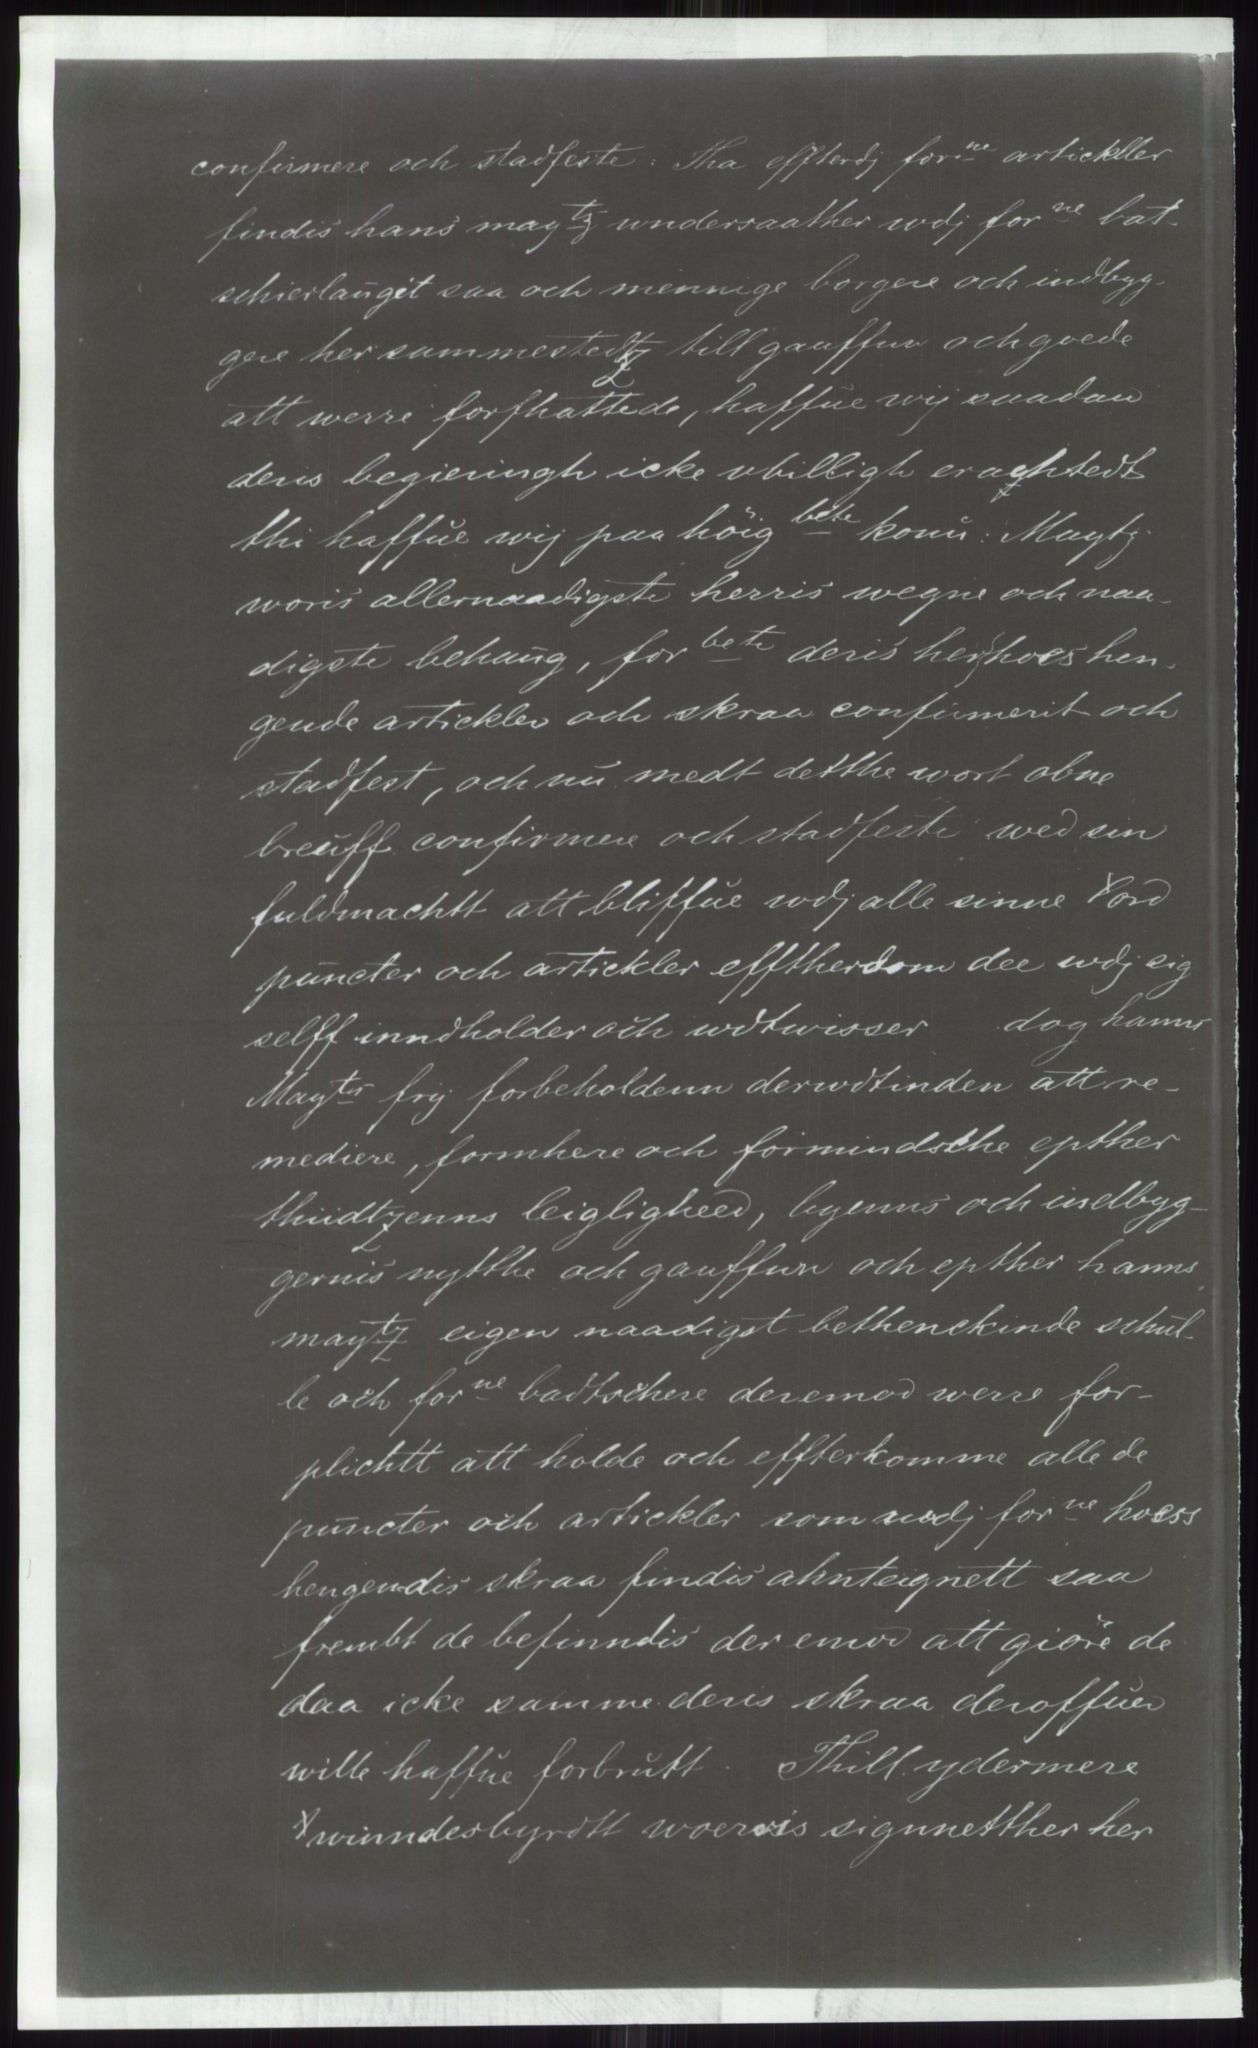 confirmere och stadfeste: Tha effterdj for ne artickller
findis hans may tz undersaather wdj for ne bat-
schierlaugit saa och mennige borgere och indbyg-
gere her sammestedtz till gauffun och goede
att werre forfhattede, haffue wij saadan
deris begieringh icke vbilligh erachtedt
thi haffue wij paa höig bete konn: Maytz
woris allernaadigste herris wegne och naa-
digste behaug, for bete deris herhoes hen-
gende artickler och skraa confirmerit och
stadfest, och nu medt detthe wort obne
breuff confirmere och stadfeste wed sin
fuldmachtt att bliffue wdj alle sinne ord
puncter och artickler efftherdom dee wdj sig
selff inndholder och wdtwisser dog hanns
May ts frij forbeholdenn derwdtinden att re-
mediere, formhere och formindsthe epther
thiidtzenns leigligheed, byenns och indbyg-
gernis nytthe och gauffun och epther hanns
maytz eigen naadigst bethenckinde schul-
le och for ne badtschere deremod werre for-
plichtt att holde och effterkomme alle de
puncter och artickler som wdj for ne hoess
hengendis skraa findis ahnteignett saa
frembt de befinndis der emod att giöre de
daa icke samme deris skraa deroffuer
wille haffue forbrutt. Thill ydermere
winndesbyrdtt woeris signnetther her